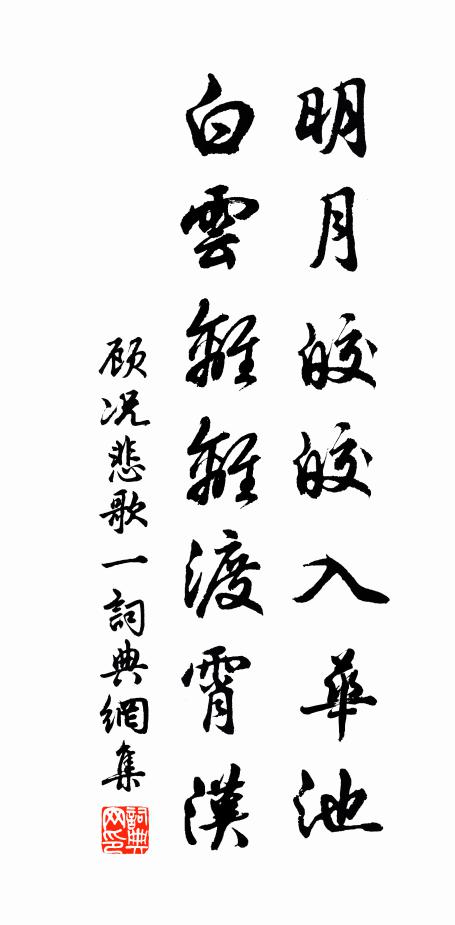 明月皎皎入華池
白雲離離渡霄漢
顾况悲歌一詞典網集
詞典网印